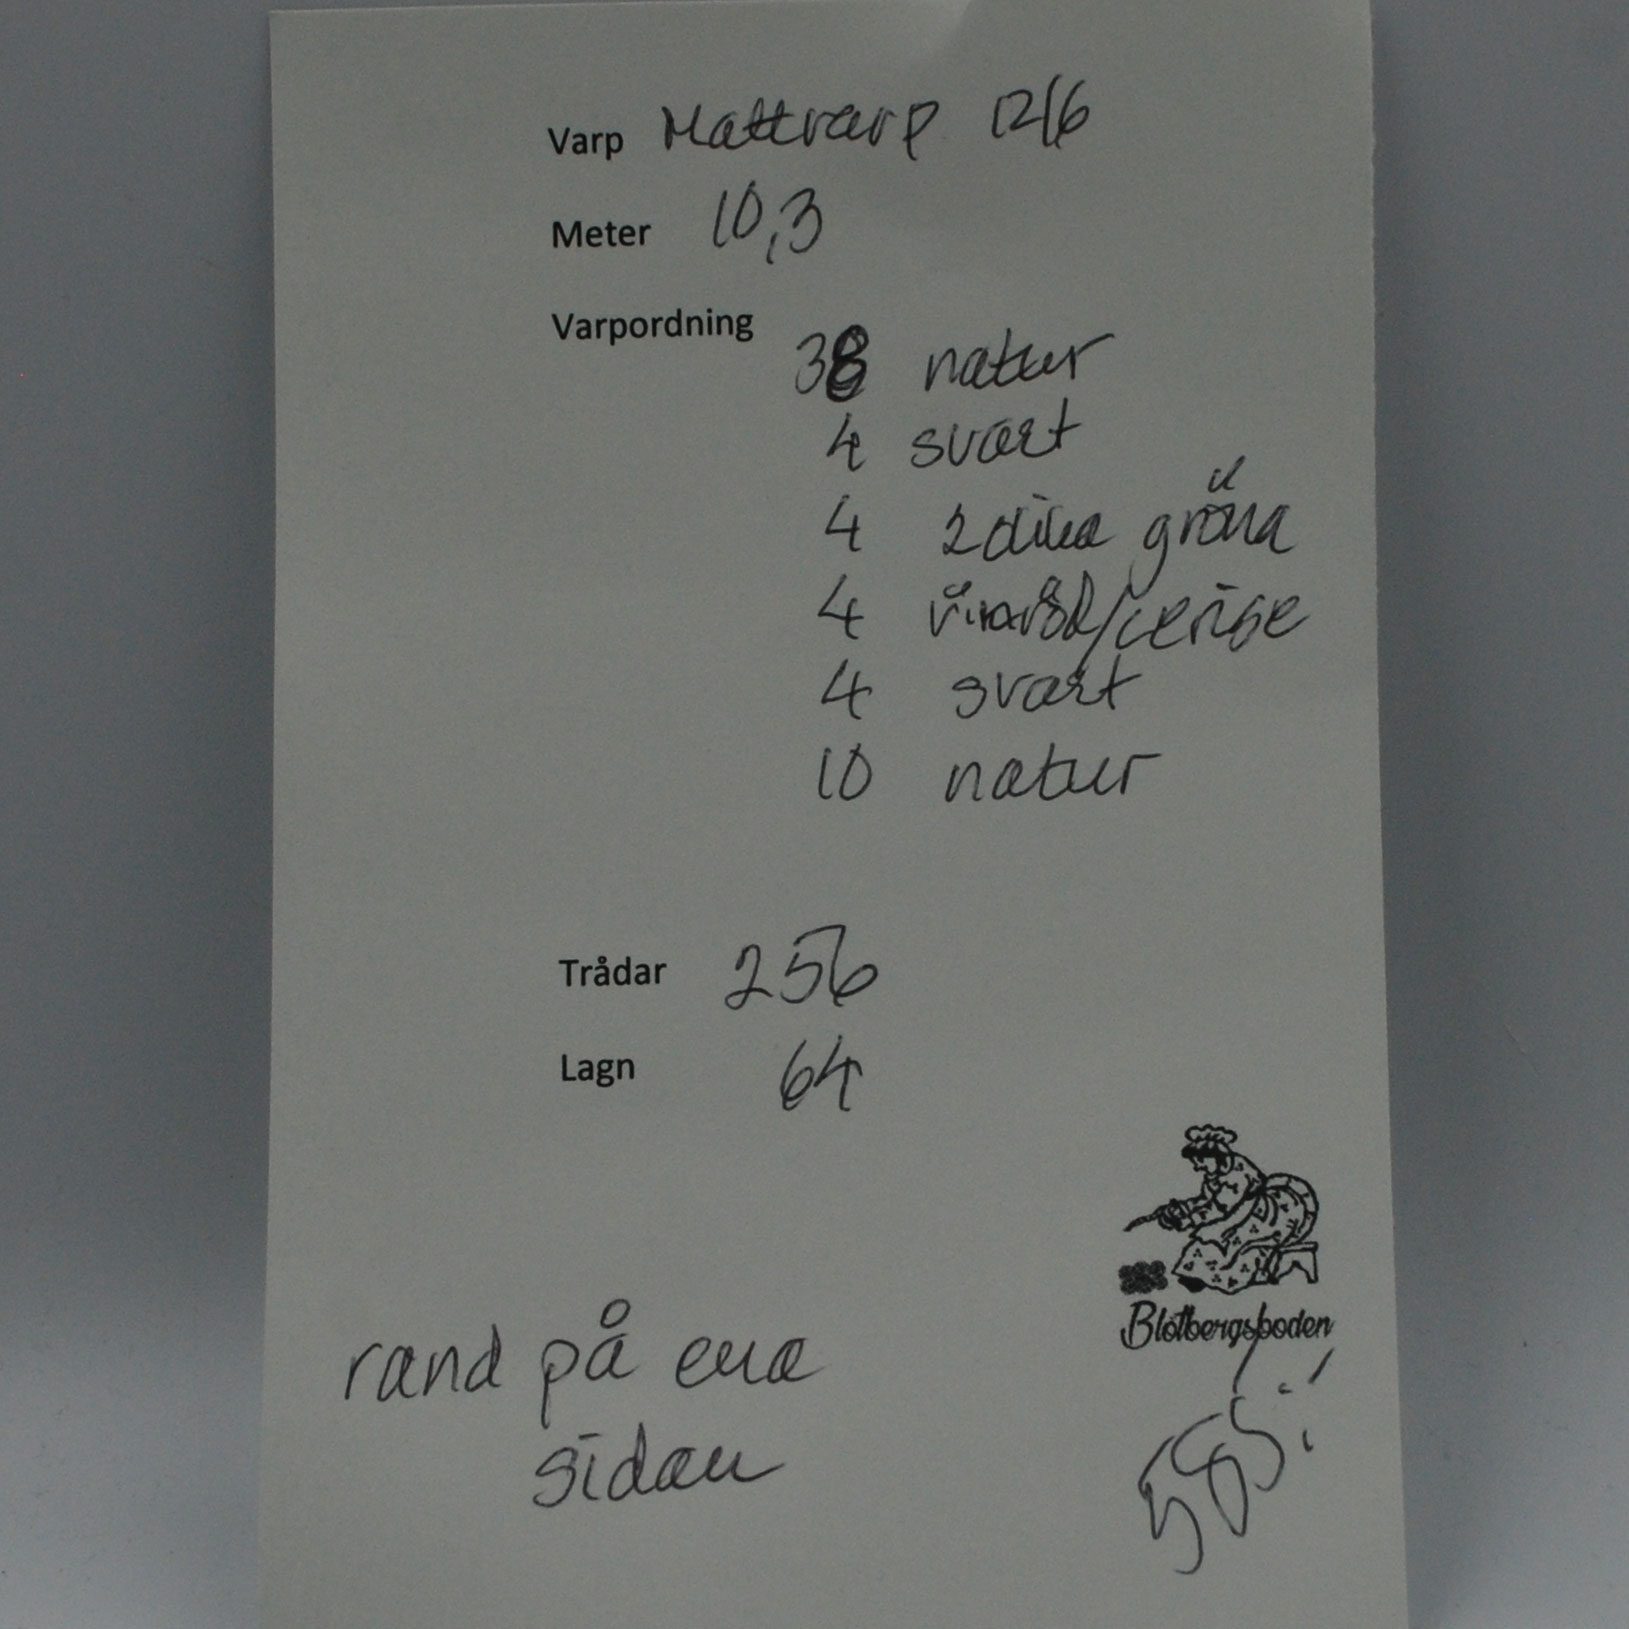 Varp Mattvarp 12/6
Meter 10,3
Varpordning
38 natur
4 svart
4 2 olika gröna
4 vinröd/cerise
4 svart
10 natur
Trådar 256
Lagn 64
Blötbergsboden
rand på ena
sidan